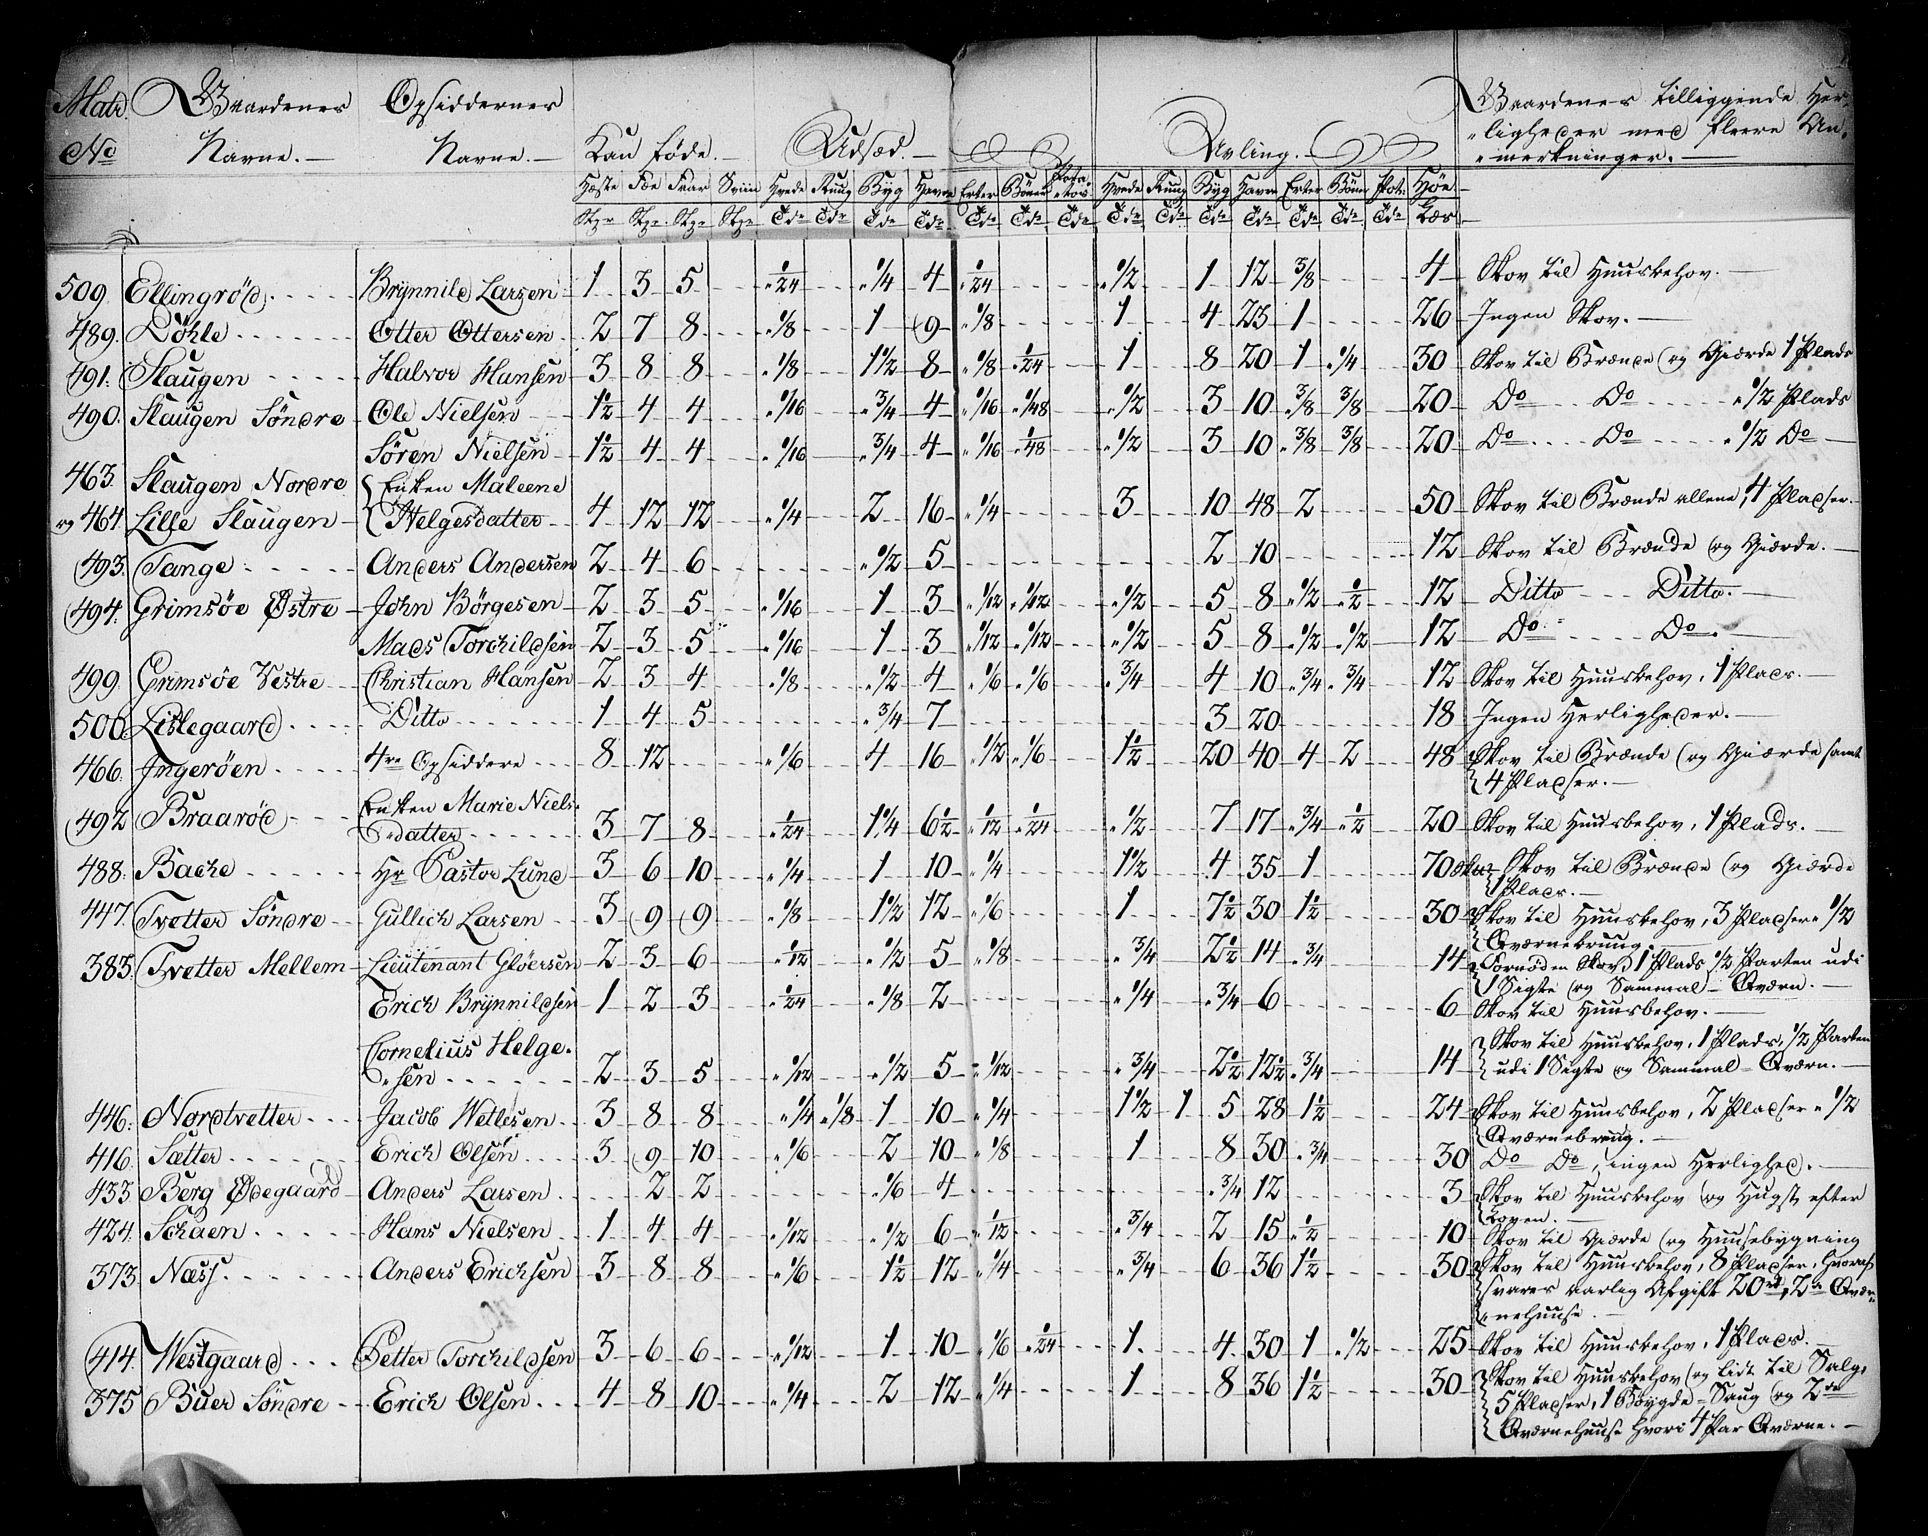 Matr. Gaardenes Opsiddernes Gaardenes tilliggende Her-
No Navne. Navne. Kan föde. Udsæd. Avling. ligheder med fleere An-
mærkninger.
Hæste Fæe Faar Sviin Hvede Ruug Byg Havre Erter Bönner Potatos Hvede Ruug Byg Havre Erter Bönner Pot. Höe
Stkr Stkr Stkr Stkr Tdr Tdr Tdr Tdr Tdr Tdr Tdr Tdr Tdr Tdr Tdr Tdr Tdr Tdr Læs
509. Ellingröd Brÿnnild Larsen 1 3 5 1/24 1/4 4 1/24 1/2 1 12 3/8 4 Skov til Huusbehov.
489. Döhle Otter Ottersen 2 7 8 1/8 1 9 1/8 1 4 25 1 26 Ingen Skov.
491. Slaugen Halvor Hansen 3 8 8 1/8 1 1/2 8 1/8 1/24 1 8 20 1 1/4 30 Skov til Brænde og Gierde 1 Plads
490. Slaugen Söndre Ole Nielsen 1 1/2 4 4 1/16 3/4 4 1/16 1/48 1/2 3 10 3/8 3/8 20 Do Do 1/2 Plads
Sören Nielsen 1 1/2 4 4 1/16 3/4 4 1/16 1/48 1/2 3 10 3/8 3/8 20 Do Do 1/2 Do
463. Slaugen Nordre Enken Maleene
og 464 Lille Slaugen Helgesdatter 4 12 12 1/4 2 16 1/4 3 10 48 2 50 Skov til Brænde allene, 4 Pladser.
493. Tange Anders Andersen 2 4 6 1/2 5 2 10 12 Skov til Brænde og Gierde.
494. Grimsöe Østre John Börgesen 2 3 5 1/16 1 3 1/12 1/12 1/2 5 8 1/2 1/2 12 Ditto Ditto.
Mads Torchildsen 2 3 5 1/16 1 3 1/12 1/12 1/2 5 8 1/2 1/2 12 Do Do.
499. Grimsöe Vestre Christian Hansen 2 3 4 1/8 1/2 4 1/6 1/6 3/4 4 10 3/4 3/4 12 Skov til Huusbehov, 1 Plads.
500. Lislegaard Ditto 1 4 5 3/4 7 3 20 18 Ingen Herligheder.
466. Ingeröen 4re Opsiddere 8 12 1/6 4 16 1/2 1/6 1 1/2 20 40 4 2 48 Skov til Brænde og Gierde samt
4 Pladser.
492 Braaröd Enken Marie Niels-
datter 3 7 8 1/24 1 1/4 6 1/2 1/12 1/24 1/2 7 17 3/4 1/2 20 Skov til Huusbehov, 1 Plads.
488. Bache Hr Pastor Lund 3 6 10 1/4 1 10 1/4 1 1/2 4 35 1 70 Skov til Brænde og Gierde
1 Plads.
447. Tvetter Söndre Gullich Larsen 3 9 9 1/8 1 1/2 12 1/6 1 7 1/2 30 1 1/2 30 Skov til Huusbehov, 3 Pladser, 1/2
Qværnebruug
383. Tvetter Mellem Lieutenant Glöersen 2 3 6 1/12 1/2 5 1/8 3/4 2 1/2 14 3/4 14 Fornöden Skov, 1 Plads 1/2 Parten udi
1 Sigte og Sammal-Qværn.
Erich Brÿnnildsen 1 2 3 1/24 1/8 2 1/4 3/4 6 6 Skov til Huusbehov.
Cornelius Helge- Skov til Huusbehov, 1 Plads, 1/2 Parten
sen 2 3 5 1/12 1/2 5 1/12 3/4 2 1/2 12 1/2 3/4 14 udi 1 Sigte og Sammal-Qværn.
446. Nordtvetter Jacob Wetlesen 3 8 8 1/4 1/8 1 10 1/4 1 1/2 1 5 28 1 1/2 24 Skov til Huusbehov, 2 Pladser, 1/2
Qværnebrug.
416. Sætter Erich Olsen 3 9 10 1/6 2 10 1/8 1 8 30 3/4 30 Do Do, ingen Herlighed.
433 Berg Ødegaard Anders Larsen 2 2 1/6 4 3/4 12 3 Skov til Huusbehov og Hugst efter
Loven.
424. Schaen Hans Nielsen 1 4 4 1/12 1/2 6 1/12 3/4 2 15 1/2 10 Skov til Gierde og Huusebygning
373. Næss Anders Erichsen 3 8 8 1/6 1 1/2 12 1/4 3/4 6 36 1 1/2 30 Skov til Huusbehov, 8 Pladser, hvoraf
svares aarlig Afgift 20 rd, 2de Qvær-
nehuuse.
414. Westgaard Petter Torchildsen 3 6 6 1/12 1 10 1/6 1/24 1 4 30 1 1/2 25 Skov til Huusbehov, 1 Plads.
375 Buer Söndre Erich Olsen 4 8 10 1/4 2 12 1/4 1 8 36 1 1/2 30 Skov til Huusbehov og lidt til Salg,
5 Pladser, 1 Bÿgde-Saug og 2de
Qværnehuuse hvori 4 Par Qværne.